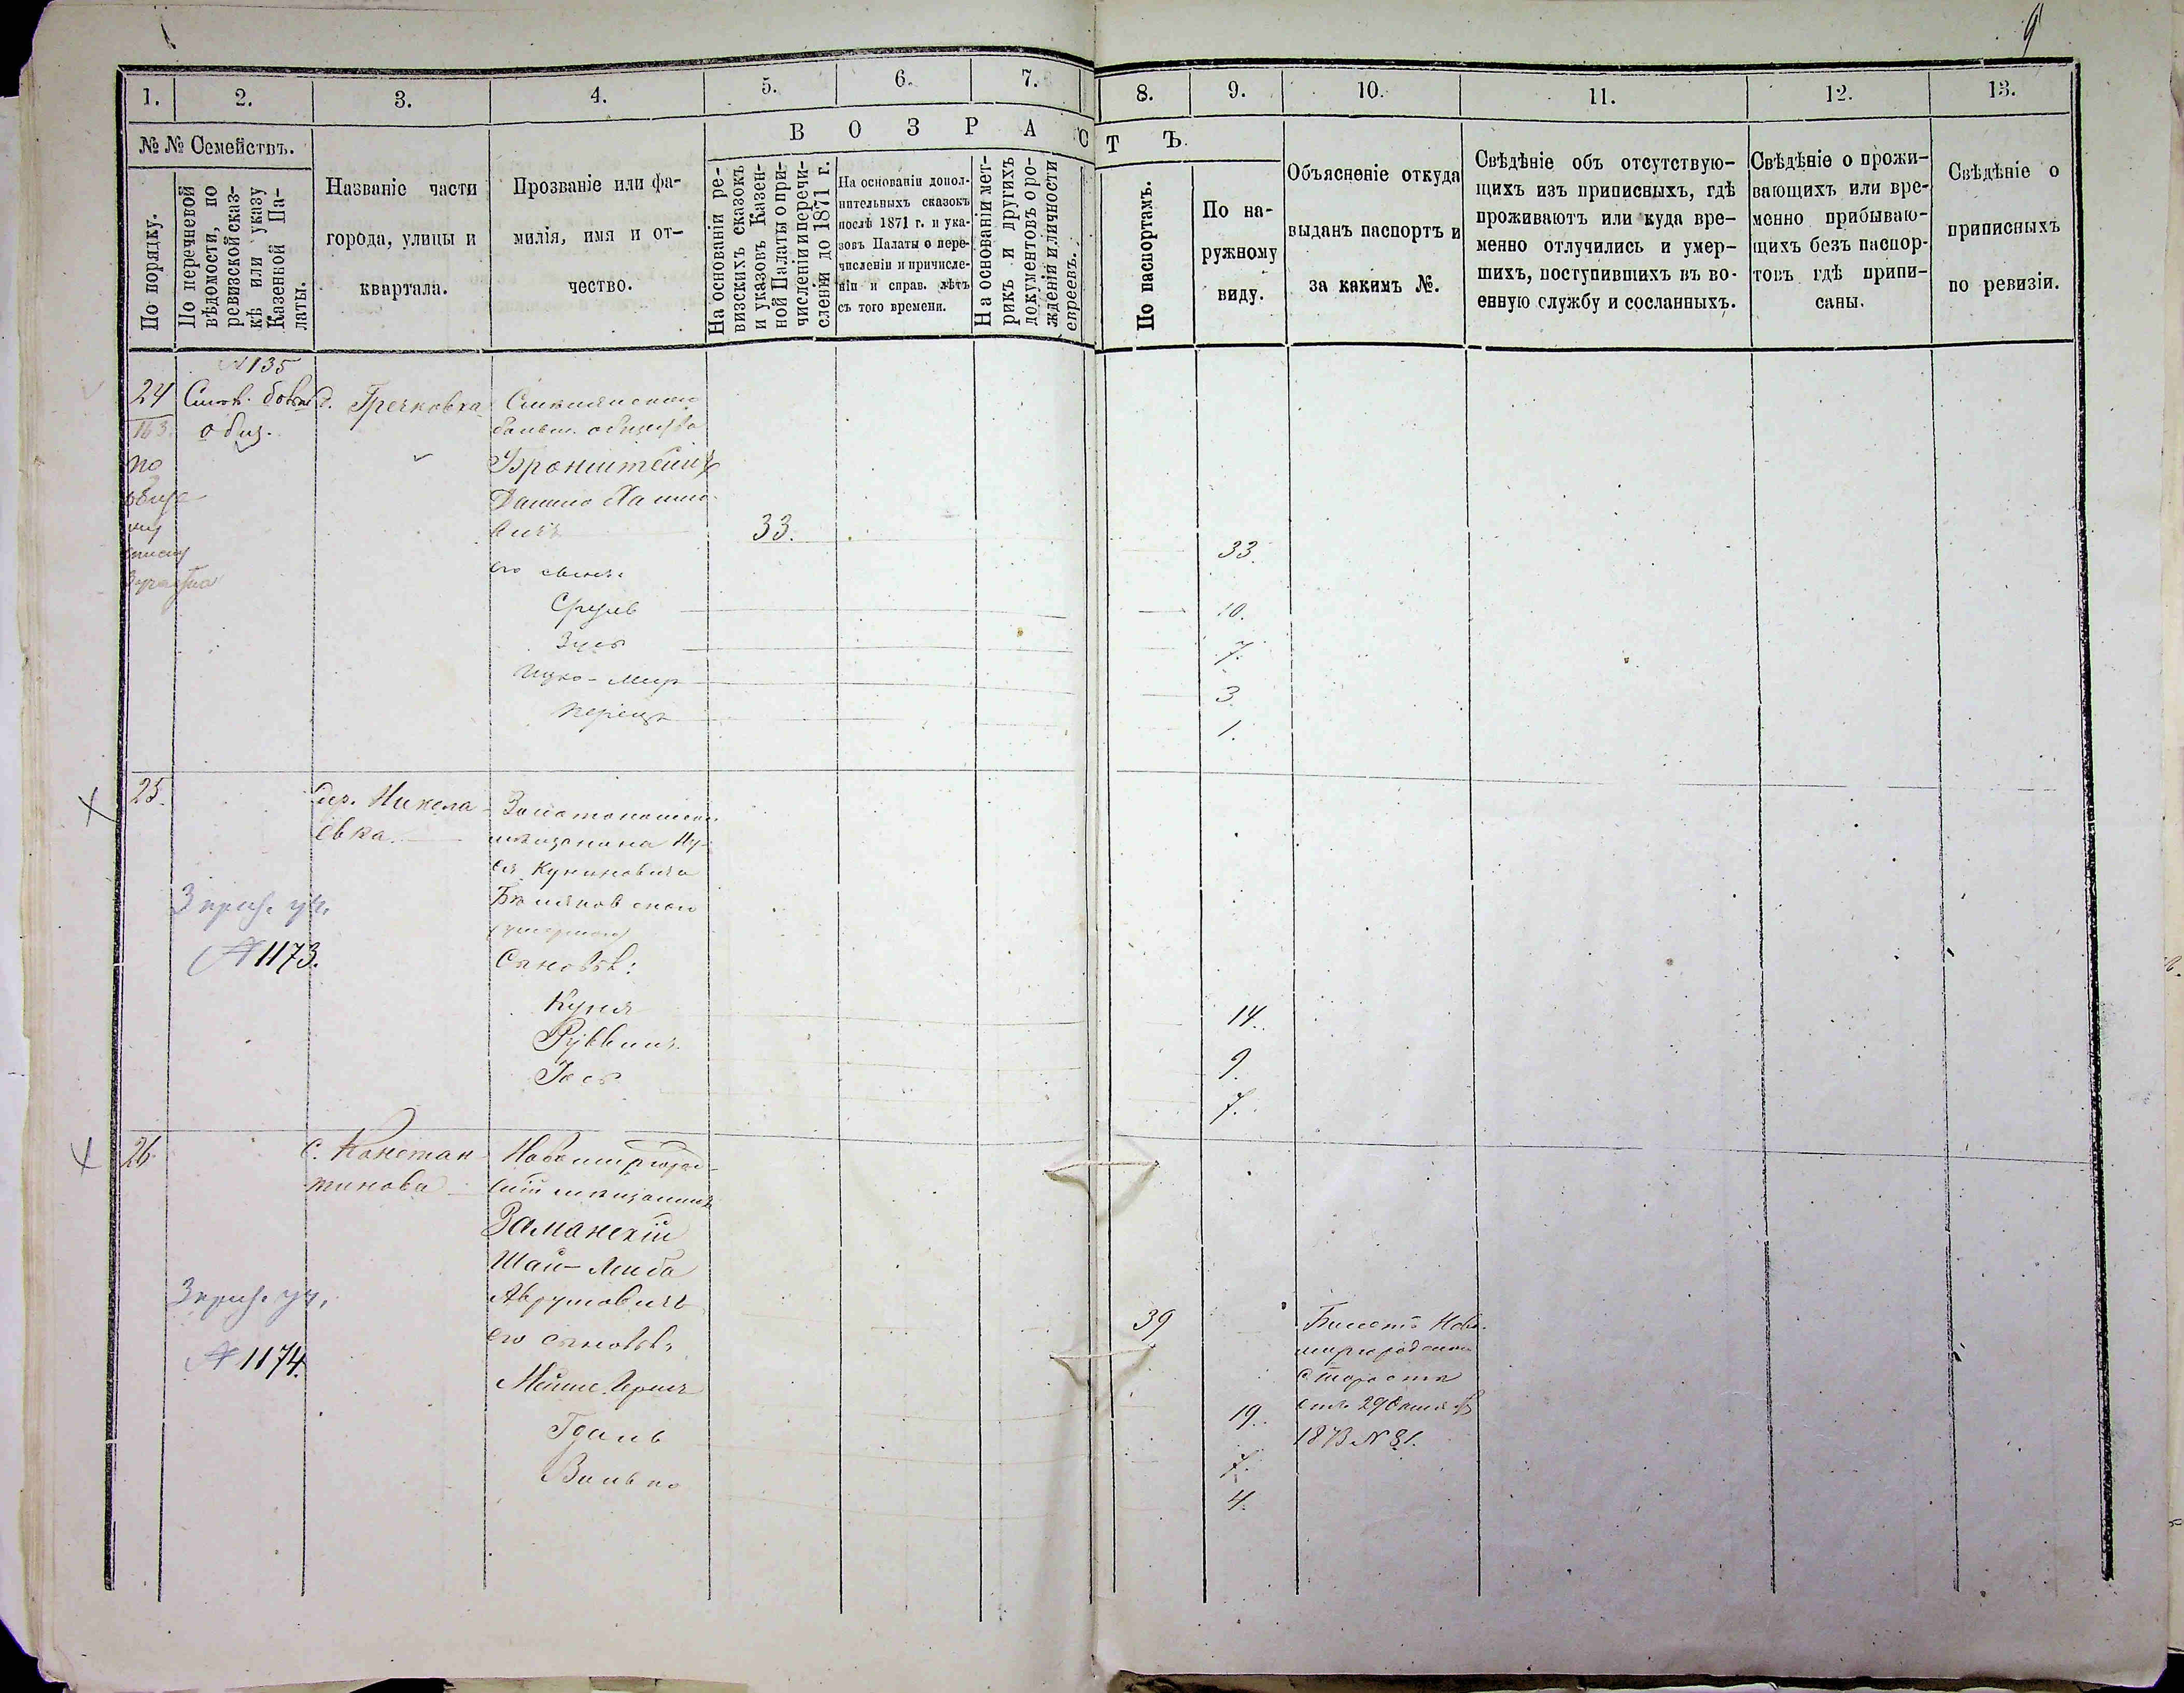 9
1. 2. 3. 4. 5. 6. 7. 8. 9. 10. 11. 12. 13.
№ № Семействъ.
По порядку.
По перечневой
вѣдомости, по
ревизской сказ-
кѣ или указу
Казенной Па-
латы.
Названіе части
города, улицы и
квартала.
Прозваніе или фа-
милія, имя и от-
чество.
В О З Р А С Т Ъ.
На основаніи ре-
визскихъ сказокъ
и указовъ Казен-
ной Палаты о при-
численіи и перечи-
сленіи до 1871 г.
На основаніи допол-
нительныхъ сказокъ
послѣ 1871 г. и ука-
зовъ Палаты о пере-
численіи и причисле-
ніи и справ. лѣтъ
съ того времени.
На основаніи мет-
рикъ и другихъ
документовъ о ро-
жденіи и личности
евреевъ.
По паспортамъ.
По на-
ружному
виду.
Объясненіе откуда
выданъ паспортъ и
за какимъ №.
Свѣдѣніе объ отсутствую-
щихъ изъ приписныхъ, гдѣ
проживаютъ или куда вре-
менно отлучились и умер-
шихъ, поступившихъ въ во-
енную службу и сосланныхъ.
Свѣдѣніе о прожи-
вающихъ или вре-
менно прибываю-
щихъ безъ паспор-
товъ гдѣ припи-
саны.
Свѣдѣніе о
приписныхъ
по ревизіи.
№ 135
24
163.
по
общ.
д. Гречковка
Бронштейнъ
33. 33.
его
Сруль 10.
Зусь 7.
Ицко-Меир 3.
Перецъ 1.
25.
Никола-
евка
Золотоношск
мѣщанина Ну-
ся Куниновича
Сыновья:
3 приз. уч.
№ 1173.
Куня 14.
Руввинъ 9.
Іось 7.
26.
С. Констан-
тиновка
Новомиргород-
скій мѣщанинъ
Заманскій
Шай-Лейба
Аврумовичъ 39
его сыновья
3 приз. уч.
№ 1174.
Мейше Герш 19.
Гдаль 7.
Волько 4.
Билетъ Ново-
миргородскаго
Старосты
отъ 29 Октяб
1873 № 81.